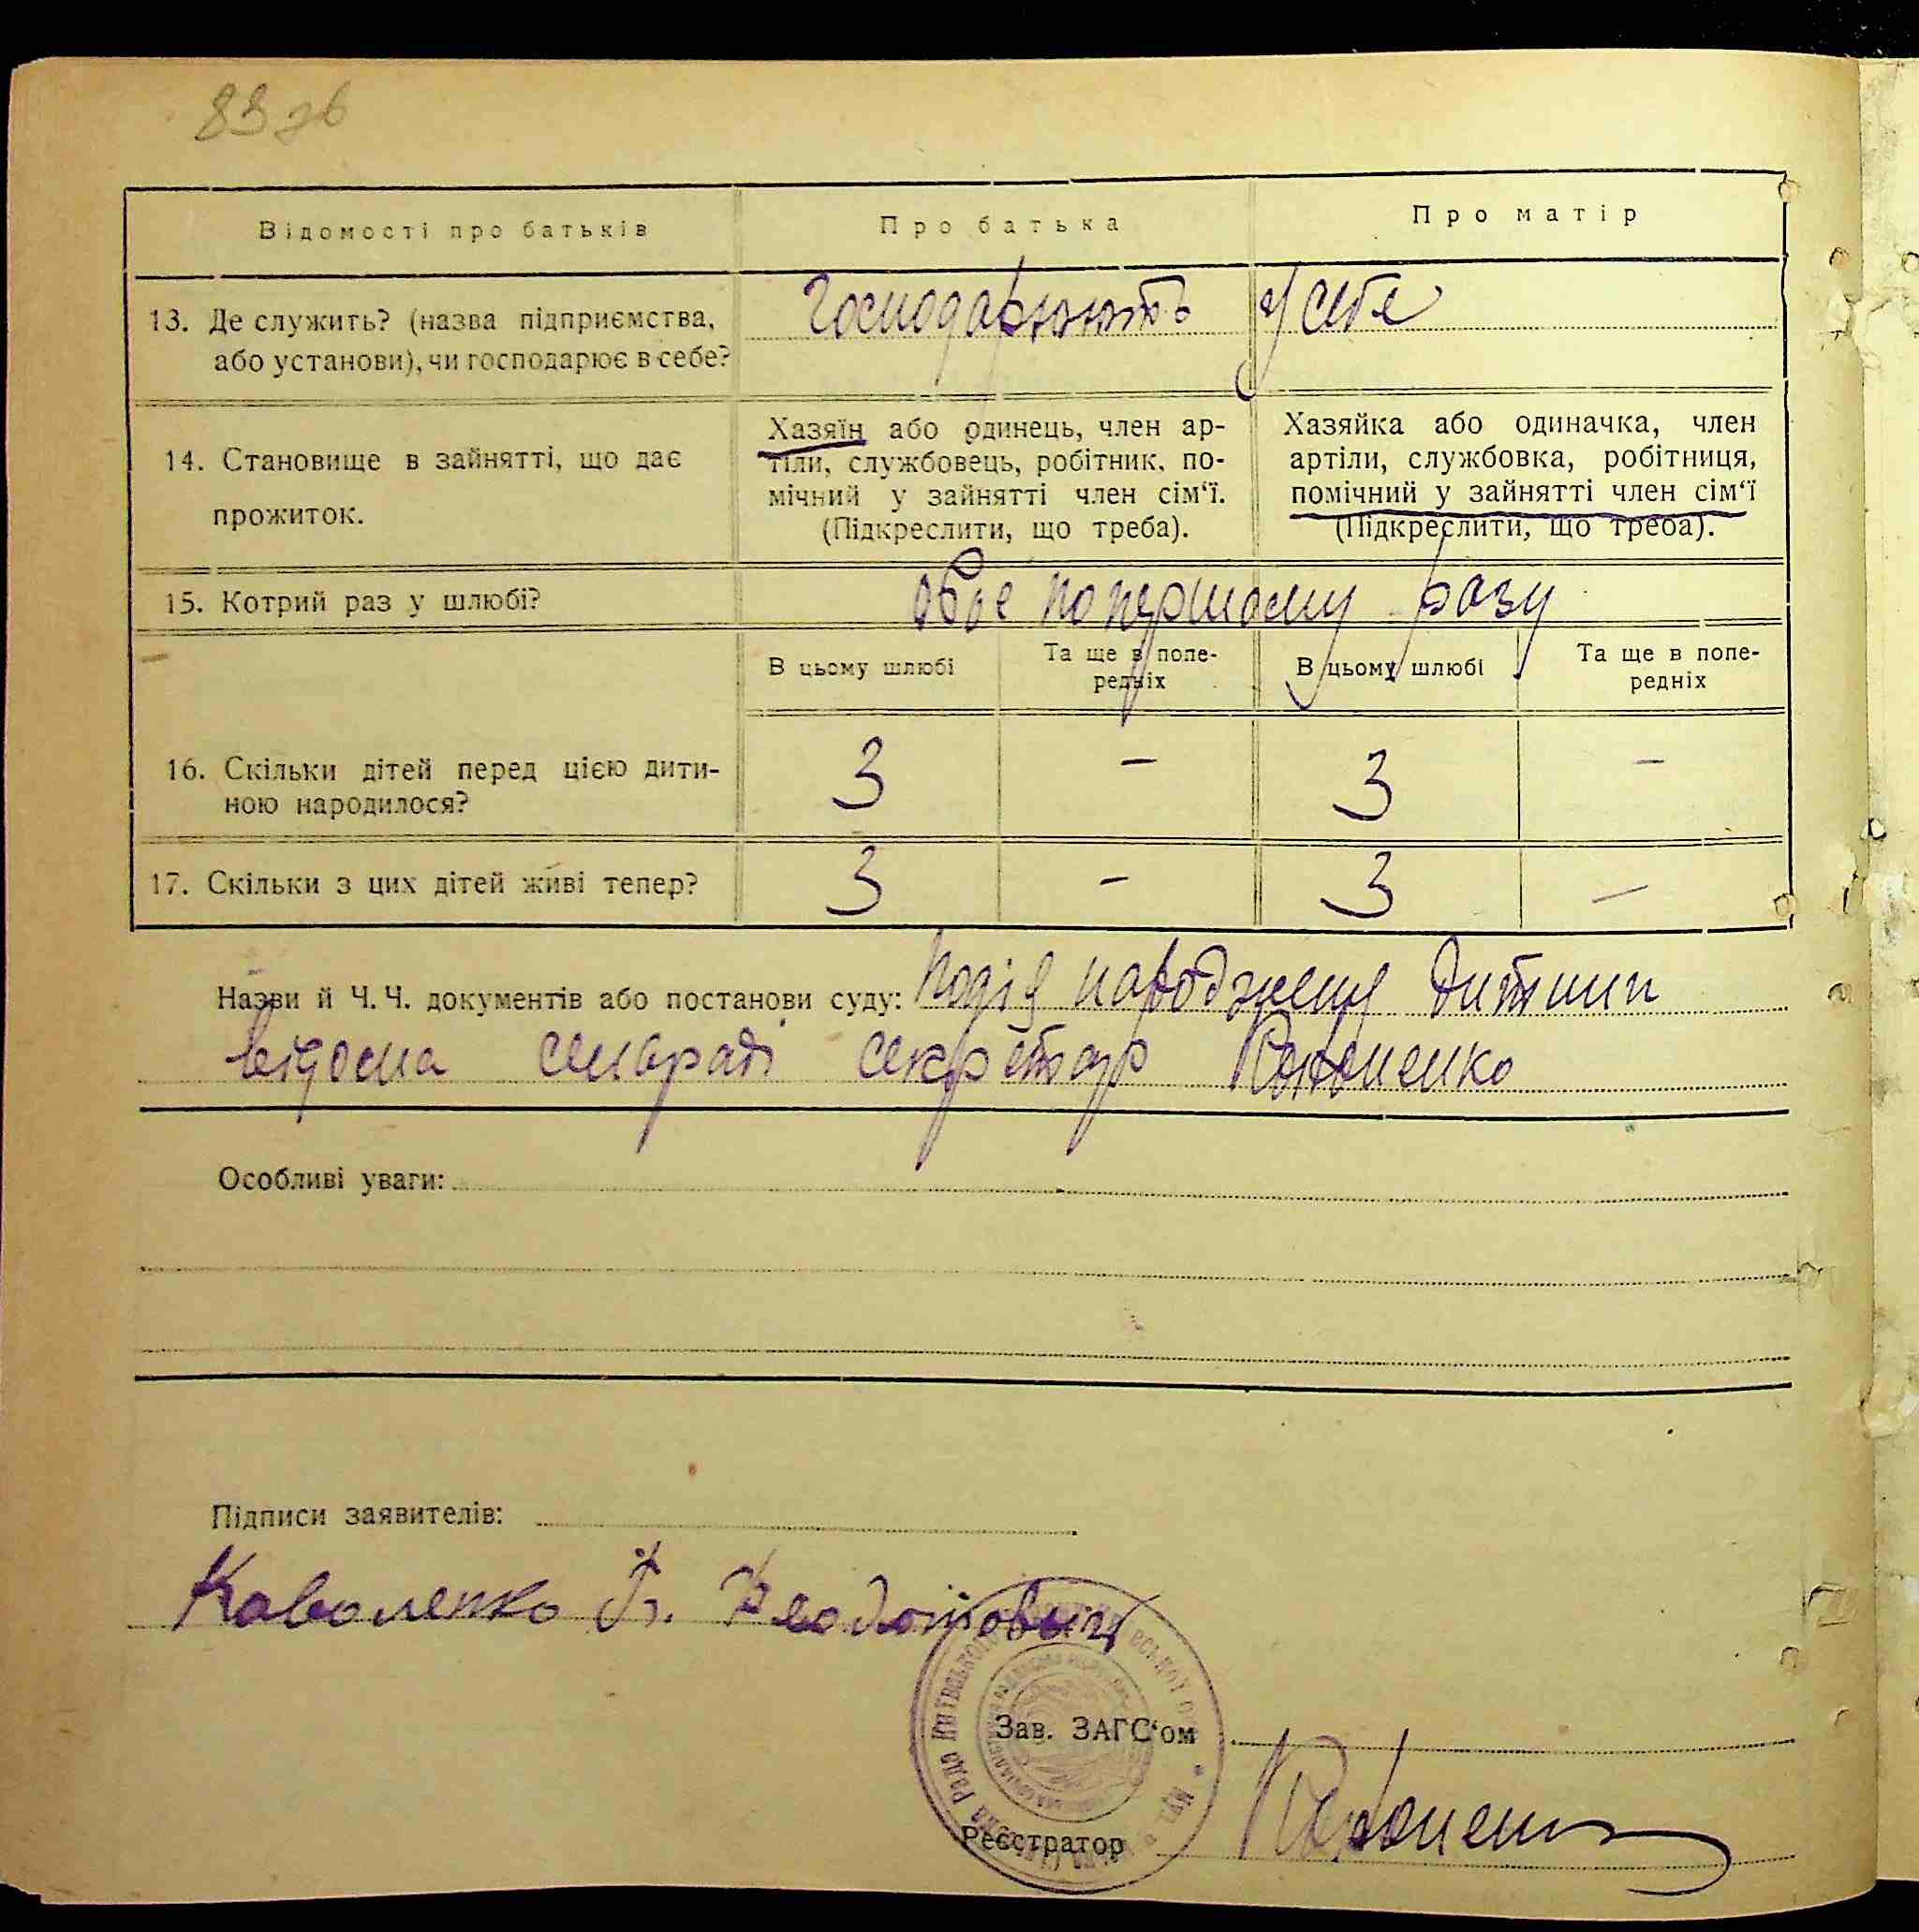 83 зв
Відомості про батьків
Про батька
Про матір
13. Де служить? (назва підприємства,
або установи), чи господарює в себе?
Господарюють у себе
14. Становище в зайнятті, що дає
прожиток.
Хазяїн або одинець, член ар-
тіли, службовець, робітник, по-
мічний у зайнятті член сім‘ї.
(Підкреслити, що треба).
Хазяйка або одиначка, член
артіли, службовка, робітниця,
помічний у зайнятті член сім‘ї
(Підкреслити, що треба).
15. Котрий раз у шлюбі?
обоє по першому разу
В цьому шлюбі
Та ще в попе-
редніх
В цьому шлюбі
Та ще в попе-
редніх
16. Скільки дітей перед цією дити-
ною народилося?
3 – 3 –
17. Скільки з цих дітей живі тепер?
3 – 3 –
Назви й Ч.Ч. документів або постанови суду: Подія народження дитини
відома сільраді секретар
Особливі уваги:
Підписи заявителів:
Коваленко
Зав. ЗАГС‘ом
Реєстратор